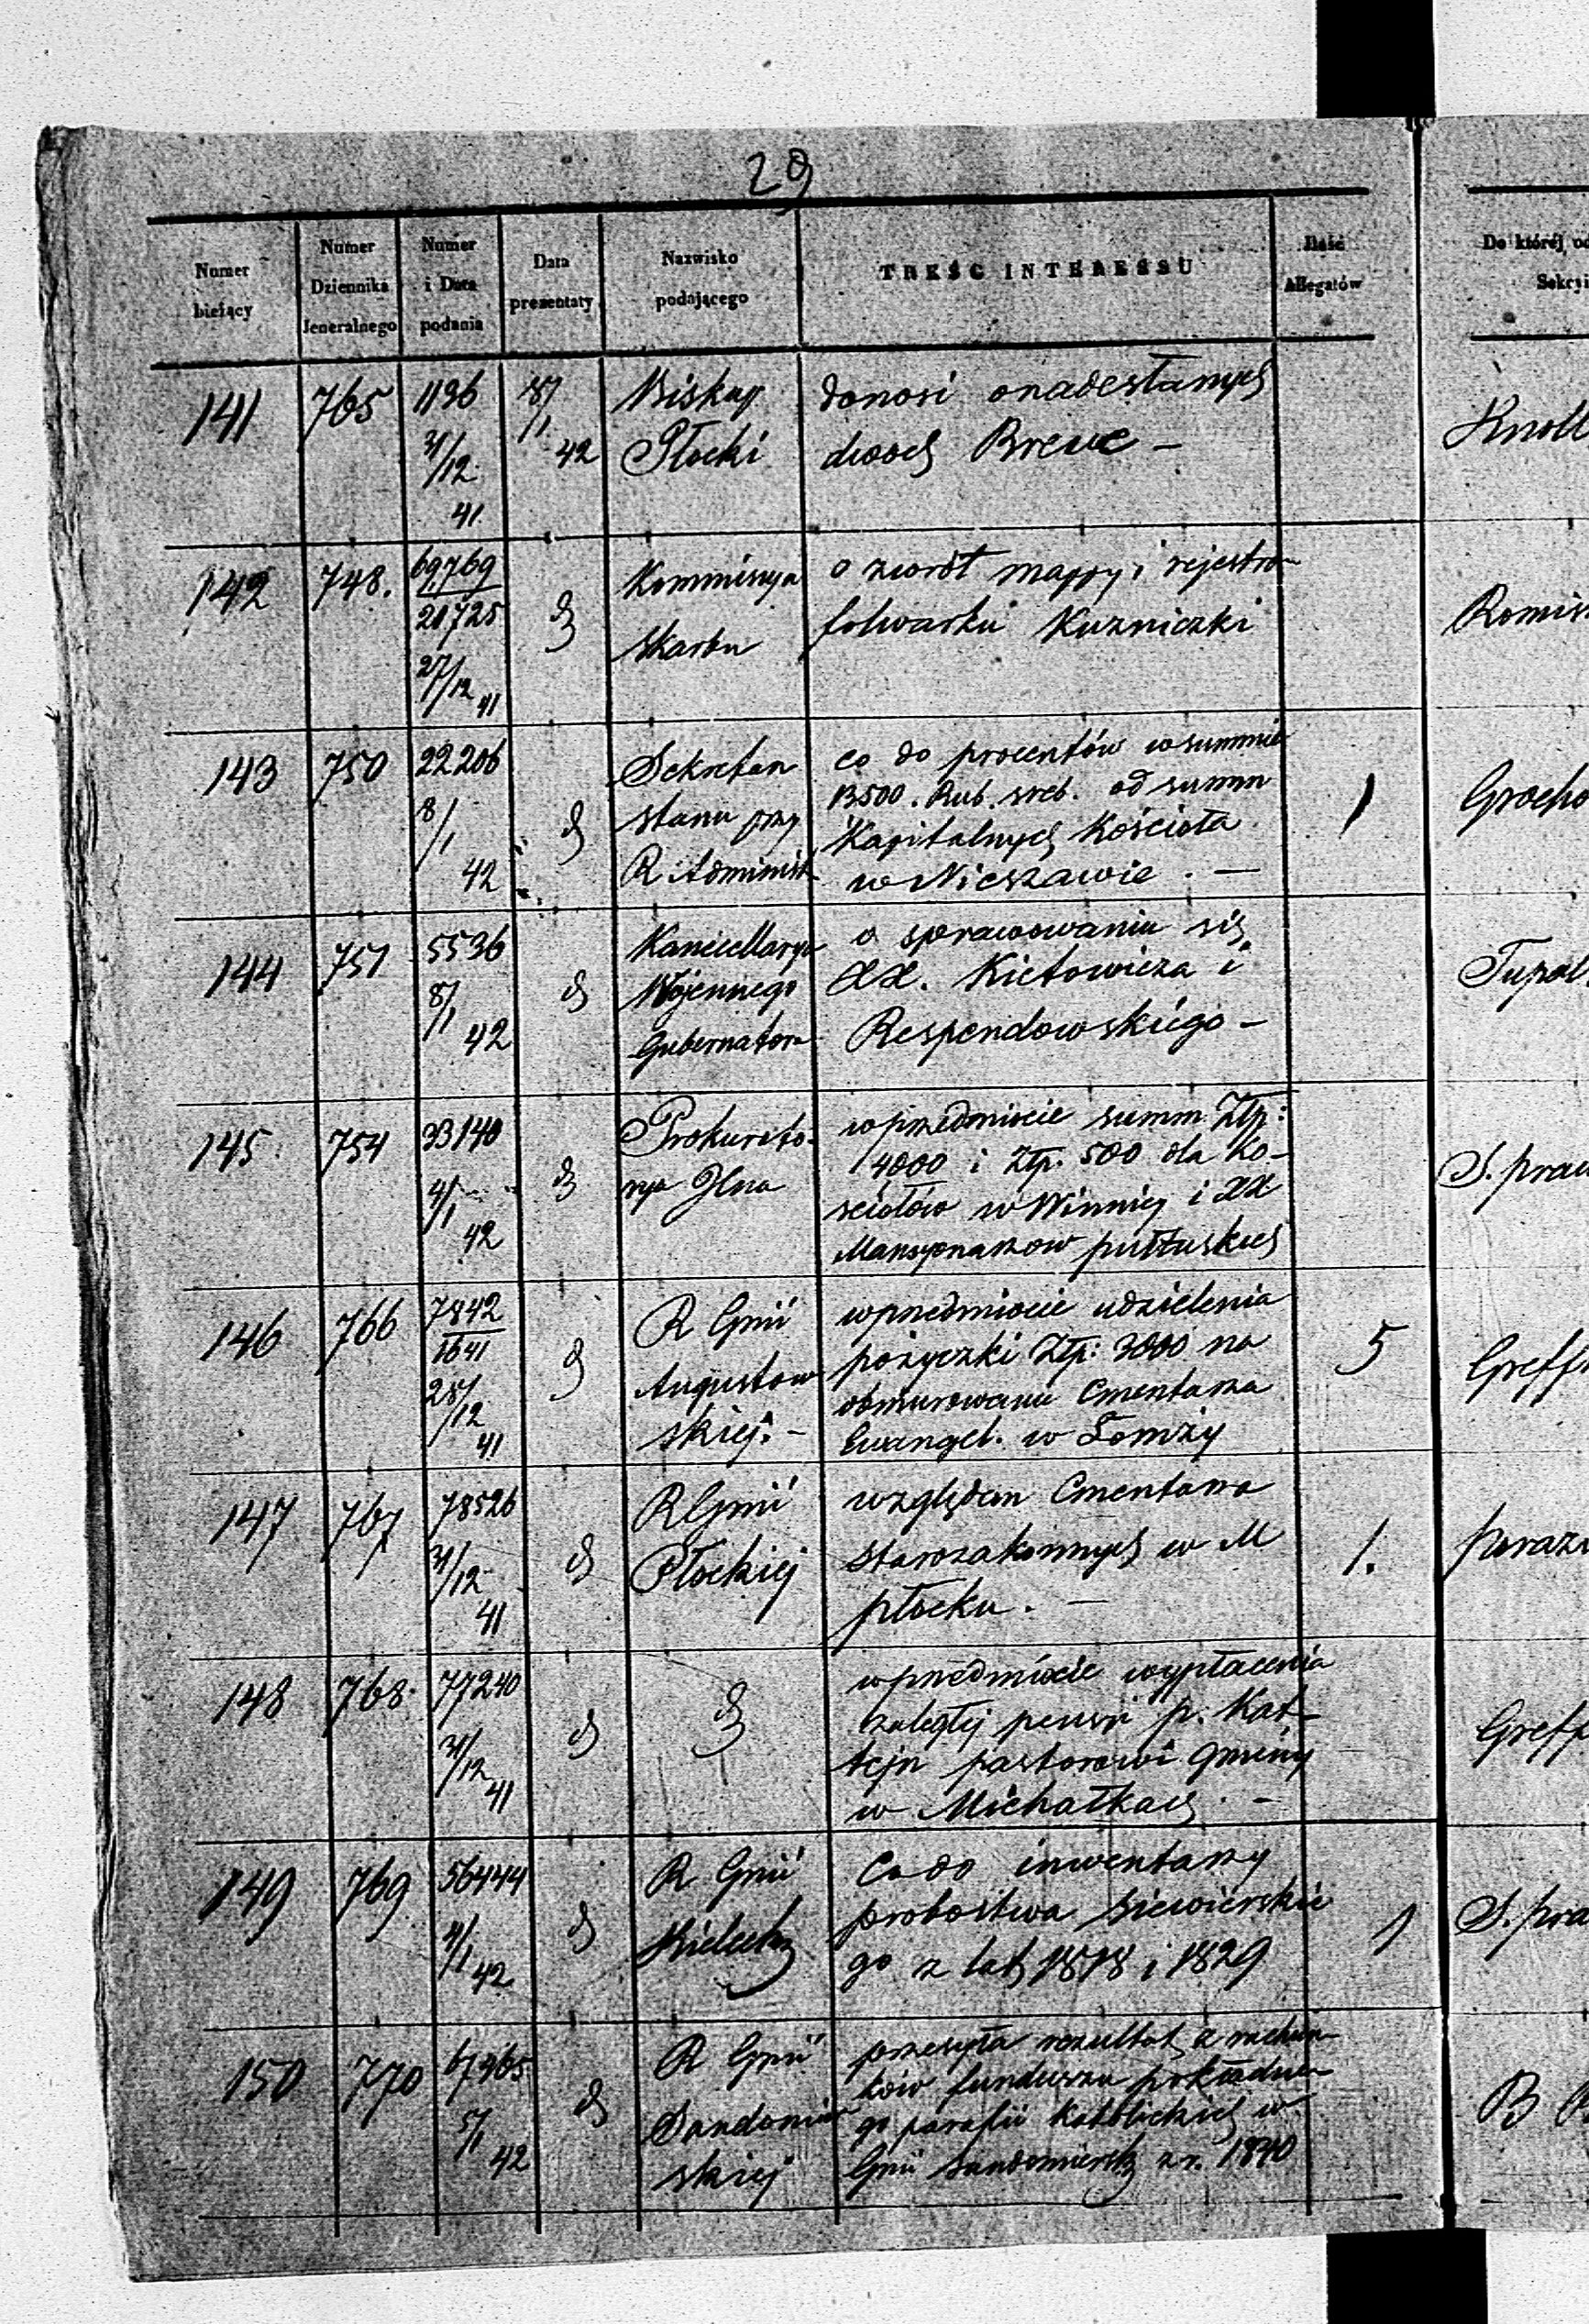 29
Numer bieżący
Numer Dziennika Jeneralnego
Numer i Data podania
Data prezentaty
Nazwisko podającego
TREŚĆ INTERESSU
Ilość Allegatów
Do której
141
765
1136
31/12
41
8/1
42
Biskup
Płocki
donosi o nadesłanych
dwóch Breve –
Knoll
142
748.
69769
20725
27/12 41
Kommissya
Skarbu
o zwrót mappy i rejestru
folwarku Kuzniczki
143
750
22206
8/1
42
Sekretarz
stanu przy
R Administ
co do procentów w summie
13500. Rub. sreb. od summ
Kapitalnych Kościoła
w Nieszawie. –
1
144
751
5536
8/1
42
Kancellarya
Wojennego
Gubernatora
o sprawowaniu się
XX. Kietowicza i
Respendowskiégo –
145.
754
33140
4/1
42
Prokurato-
rya Jlna
w przedmiocie summ Złp:
4000 i Złp. 500 dla Ko-
ściołów w Winnicy i XX
Mansyonarzow pułtuskich
S. praw
146
766
7842
1641
28/12
41
R Gnii
Augustow
skiej. –
w przedmiocie udzielenia
pożyczki Złp: 3000 na
obmurowanie Cmentarza
Ewangel. w Łomży
5
147
767
78526
31/12
41
R Gnii
Płockiej
względem Cmentarza
starozakonnych w M
płocku. –
1.
148
768.
77240
31/12
41
w przedmiocie wypłacenia
zaległej pensji p. Kat-
tejn pastorowi gminy
w Michałkach. –
149
769
56444
4/1
42
R Gnii
Kieleckiej
Co do inwentarzy
probostwa siewierskie
go z lat 1818 i 1829
1
S. pra
150
770
67965
5/1
42
R Gnii
Sandomier
skiej
przesyła rezultat z rachun-
ków funduszu pokładne-
go parafii Katolickich w
Gnii sandomiersk z r. 1840
B